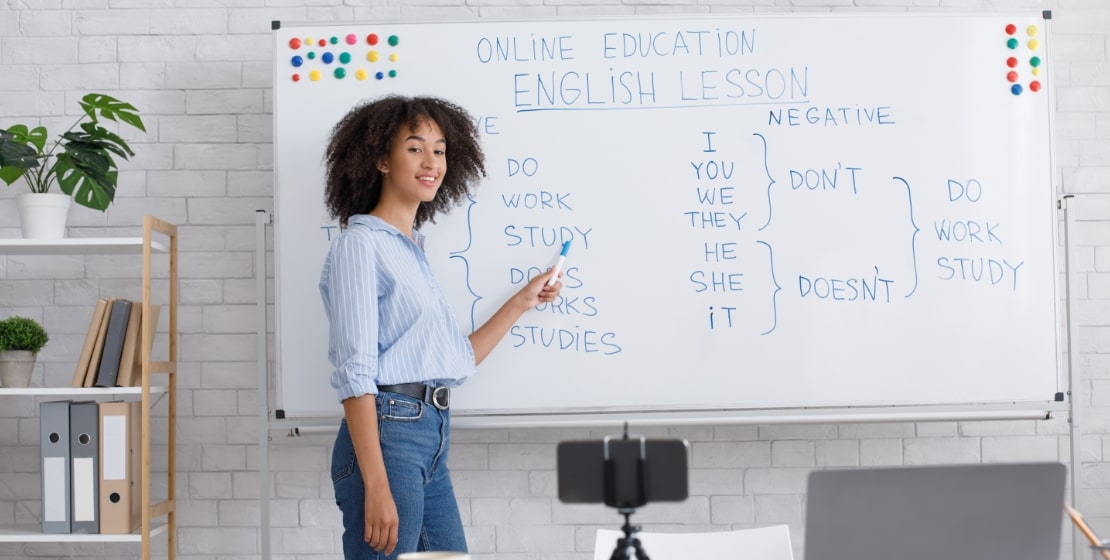 ONLINE EDUCATION
ENGLISH LESSON
DO
WORK
STUDY
WORKS
STUDIES
NEGATIVE
I
YOU
WE
THEY
DON'T
HE
SHE
iT
DOESN'T
DO
WORK
STUDY